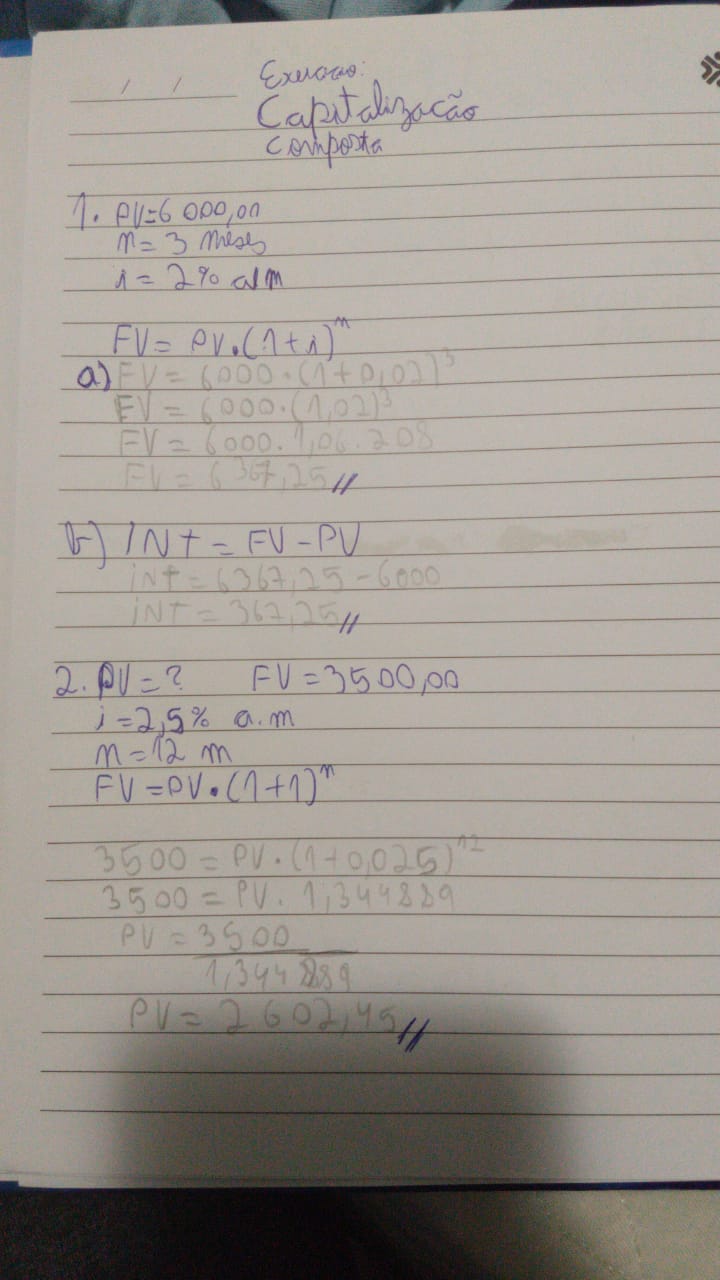 / /
Exercicio:
Capitalização
composta
1. PV=6 000,00
n= 3 meses
i= 2% a/m
FV= PV.(1+i)^n
a) FV= 6000.(1+0,02)^3
FV= 6000.(1,02)^3
FV= 6000.1,06.208
FV= 6367,25//
b) INt = FV-PV
iNt= 6367,25-6000
iNT= 367,25//
2. PV=? FV=3500,00
i=2,5% a.m
n=12 m
FV=PV.(1+1)^n
3500= PV.(1+0,025)^12
3500= PV. 1,344889
PV=3500
1,344889
PV= 2602,45//